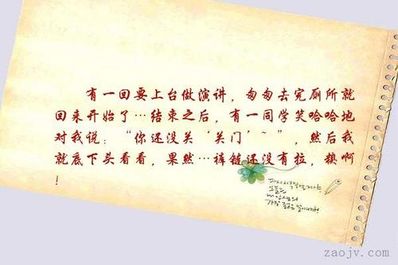 有一回要上台做演讲，匆匆去完厕所就
回来开始了…结束之后，有一同学笑哈哈地
对我说：“你还没关‘关门’~”，然后我
就底下头看看，果然…裤链还没有拉，糗啊
！
zaojv.com